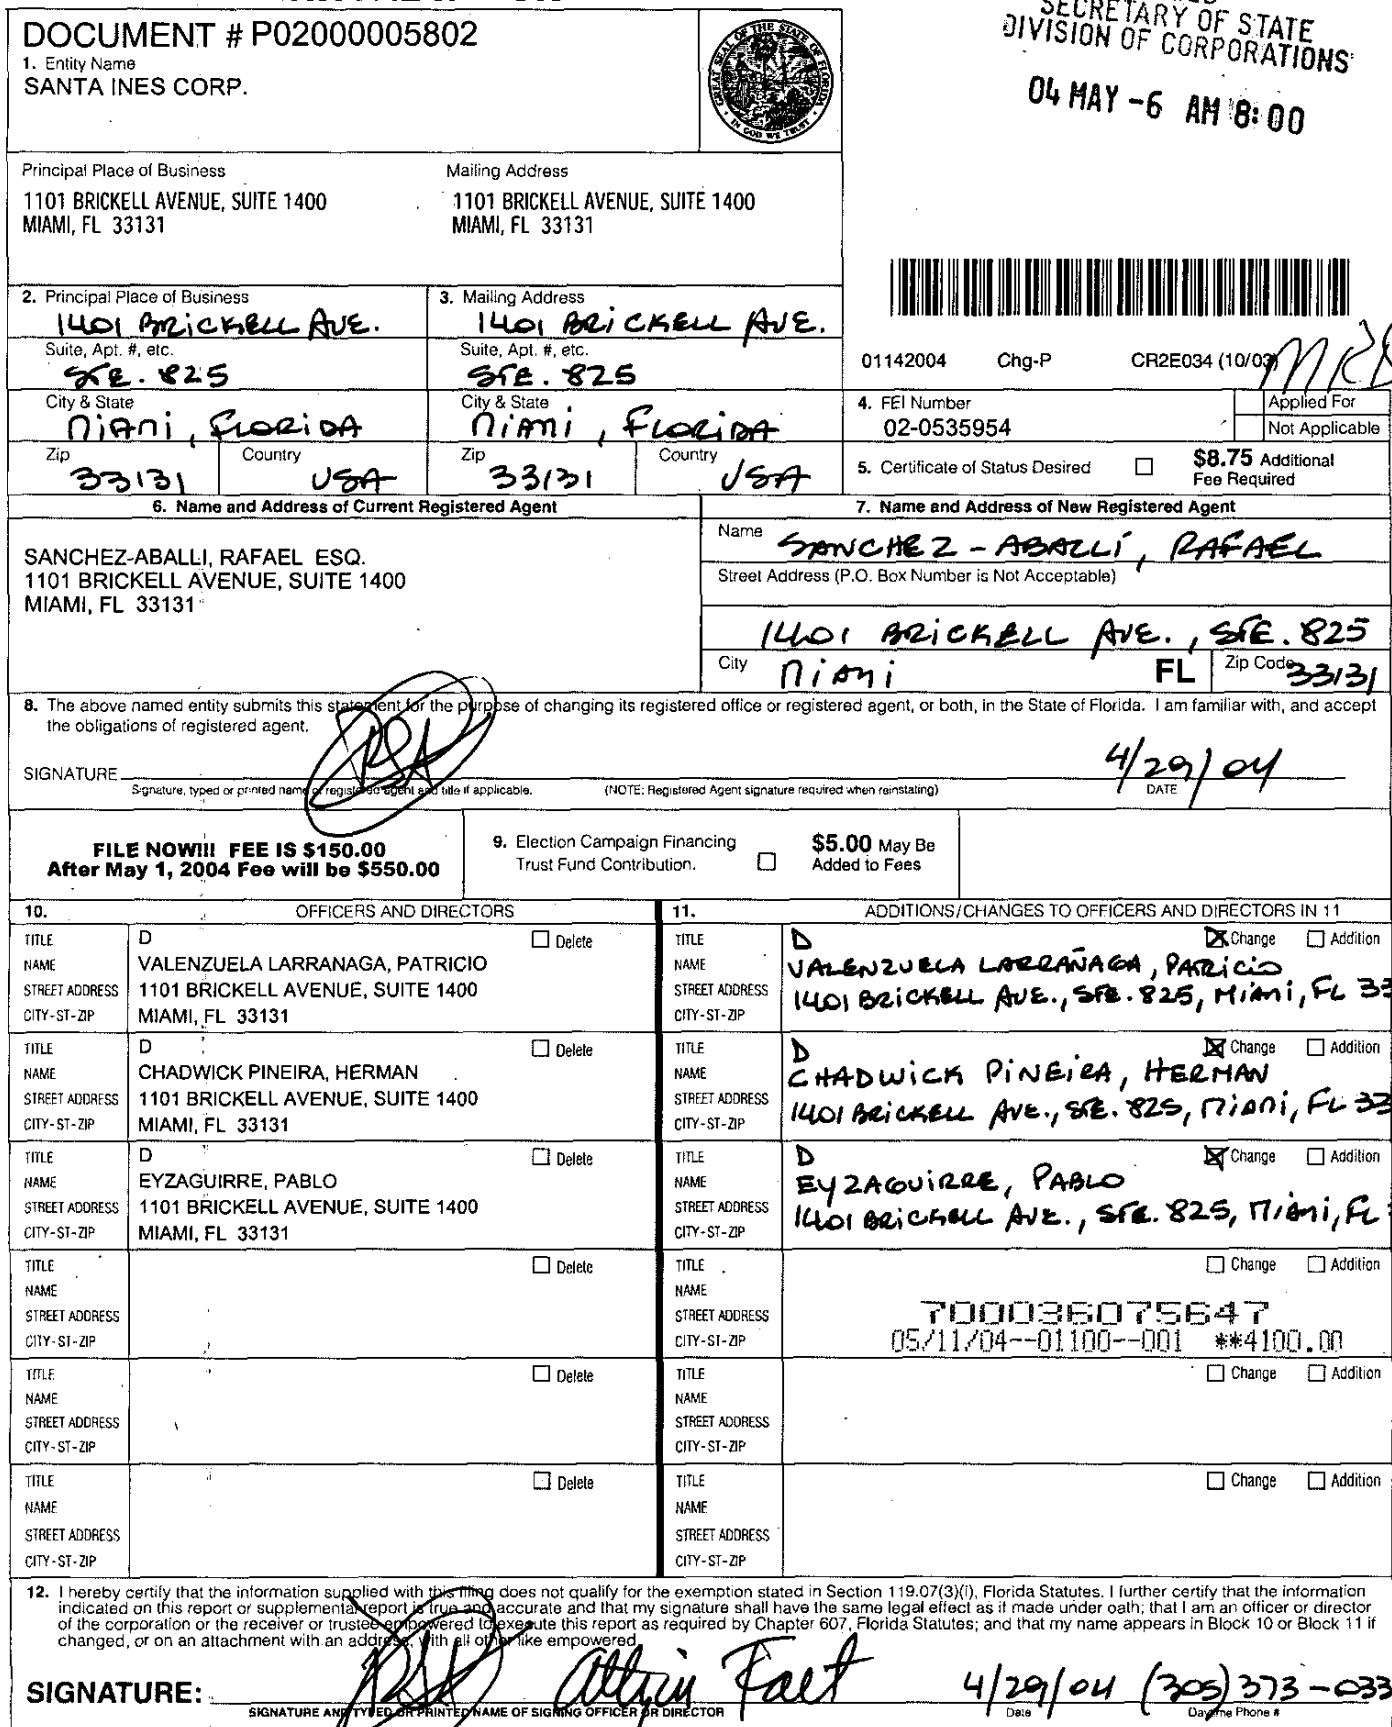 SECRETARY OF STATE
DIVISION OF CORPORATIONS
04 MAY -6 AM 8:00
DOCUMENT # P02000005802
1. Entity Name
SANTA INES CORP.
GREAT SEAL OF THE STATE OF FLORIDA
IN GOD WE TRUST
Principal Place of Business
1101 BRICKELL AVENUE, SUITE 1400
MIAMI, FL 33131
Mailing Address
1101 BRICKELL AVENUE, SUITE 1400
MIAMI, FL 33131
2. Principal Place of Business
1401 BRICKELL AVE.
Suite, Apt. #, etc.
STE. 825
City & State
MIAMI, FLORIDA
Zip
33131
Country
USA
3. Mailing Address
1401 BRICKELL AVE.
Suite, Apt. #, etc.
STE. 825
City & State
MIAMI, FLORIDA
Zip
33131
Country
USA
01142004 Chg-P CR2E034 (10/03)
4. FEI Number
02-0535954
Applied For
Not Applicable
5. Certificate of Status Desired
$8.75 Additional
Fee Required
6. Name and Address of Current Registered Agent
SANCHEZ-ABALLI, RAFAEL ESQ.
1101 BRICKELL AVENUE, SUITE 1400
MIAMI, FL 33131
7. Name and Address of New Registered Agent
Name SANCHEZ-ABALLI, RAFAEL
Street Address (P.O. Box Number is Not Acceptable)
1401 BRICKELL AVE., STE. 825
City MIAMI FL Zip Code 33131
8. The above named entity submits this statement for the purpose of changing its registered office or registered agent, or both, in the State of Florida. I am familiar with, and accept
the obligations of registered agent.
SIGNATURE RSA 4/29/04
Signature, typed or printed name of registered agent and title if applicable. (NOTE: Registered Agent signature required when reinstating) DATE
FILE NOW!!! FEE IS $150.00
After May 1, 2004 Fee will be $550.00
9. Election Campaign Financing
Trust Fund Contribution.
$5.00 May Be
Added to Fees
10. OFFICERS AND DIRECTORS
TITLE D Delete
NAME VALENZUELA LARRANAGA, PATRICIO
STREET ADDRESS 1101 BRICKELL AVENUE, SUITE 1400
CITY-ST-ZIP MIAMI, FL 33131
TITLE D Delete
NAME CHADWICK PINEIRA, HERMAN
STREET ADDRESS 1101 BRICKELL AVENUE, SUITE 1400
CITY-ST-ZIP MIAMI, FL 33131
TITLE D Delete
NAME EYZAGUIRRE, PABLO
STREET ADDRESS 1101 BRICKELL AVENUE, SUITE 1400
CITY-ST-ZIP MIAMI, FL 33131
TITLE Delete
NAME
STREET ADDRESS
CITY-ST-ZIP
TITLE Delete
NAME
STREET ADDRESS
CITY-ST-ZIP
TITLE Delete
NAME
STREET ADDRESS
CITY-ST-ZIP
11. ADDITIONS/CHANGES TO OFFICERS AND DIRECTORS IN 11
TITLE D Change Addition
NAME VALENZUELA LARRAÑAGA, PATRICIO
STREET ADDRESS 1401 BRICKELL AVE., STE. 825, MIAMI, FL 33
CITY-ST-ZIP
TITLE D Change Addition
NAME CHADWICK PINEIRA, HERMAN
STREET ADDRESS 1401 BRICKELL AVE., STE. 825, MIAMI, FL 33
CITY-ST-ZIP
TITLE D Change Addition
NAME EYZAGUIRRE, PABLO
STREET ADDRESS 1401 BRICKELL AVE., STE. 825, MIAMI, FL
CITY-ST-ZIP
TITLE Change Addition
NAME
STREET ADDRESS 700036075647
CITY-ST-ZIP 05/11/04--01100--001 **4100.00
TITLE Change Addition
NAME
STREET ADDRESS
CITY-ST-ZIP
TITLE Change Addition
NAME
STREET ADDRESS
CITY-ST-ZIP
12. I hereby certify that the information supplied with this filing does not qualify for the exemption stated in Section 119.07(3)(i), Florida Statutes. I further certify that the information
indicated on this report or supplemental report is true and accurate and that my signature shall have the same legal effect as if made under oath; that I am an officer or director
of the corporation or the receiver or trustee empowered to execute this report as required by Chapter 607, Florida Statutes; and that my name appears in Block 10 or Block 11 if
changed, or on an attachment with an address, with all other like empowered.
SIGNATURE: RSA Fact 4/29/04 (305) 373-033
SIGNATURE AND TYPED OR PRINTED NAME OF SIGNING OFFICER OR DIRECTOR Date Daytime Phone #